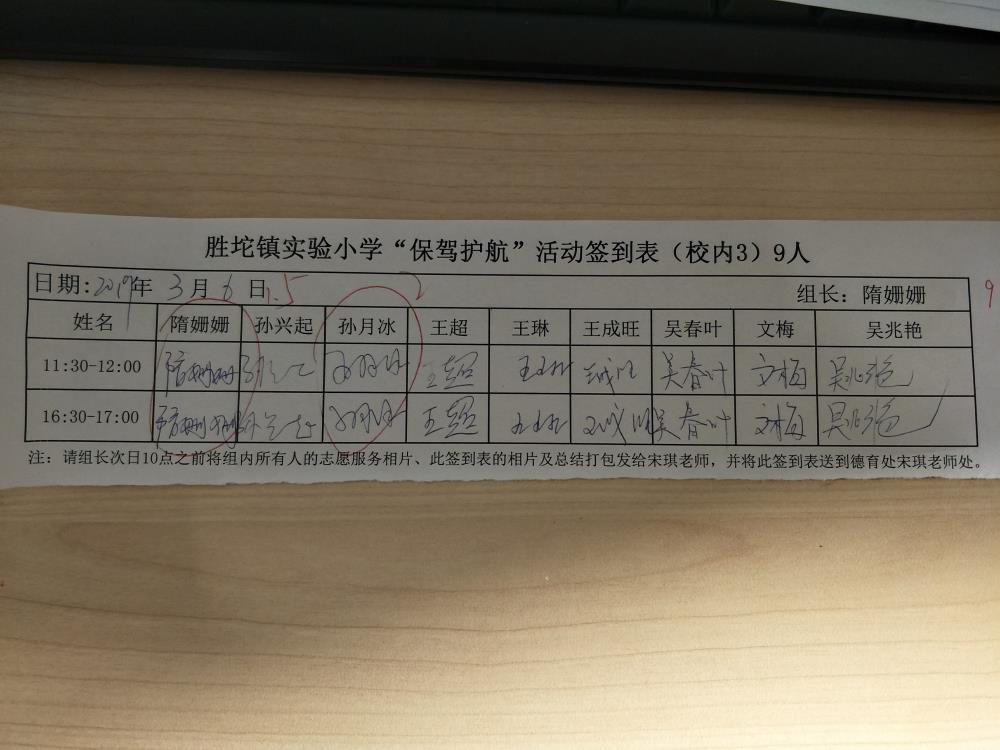 胜坨镇实验小学“保驾护航”活动签到表（校内3）9人
日期:2019年 3月 6日 1.5 2 组长：隋姗姗 9
姓名 隋姗姗 孙兴起 孙月冰 王超 王琳 王成旺 吴春叶 文梅 吴兆艳
11:30-12:00 隋姗姗 孙兴起 孙月冰 王超 王琳 王成旺 吴春叶 文梅 吴兆艳
16:30-17:00 隋姗姗 孙兴起 孙月冰 王超 王琳 王成旺 吴春叶 文梅 吴兆艳
注：请组长次日10点之前将组内所有人的志愿服务相片、此签到表的相片及总结打包发给宋琪老师，并将此签到表送到德育处宋琪老师处。